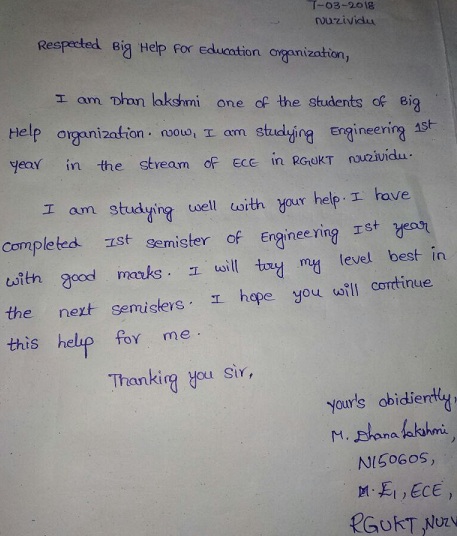 7-03-2018
Nuzividu
Respected Big Help For Education organization,
I am Dhan lakshmi one of the students of Big
Help organization. Now, I am studying Engineering 1st
year in the stream of ECE in RGUKT Nuzividu.
I am studying well with your help. I have
completed Ist semister of Engineering Ist year
with good marks. I will try my level best in
the next semisters. I hope you will continue
this help for me.
Thanking you sir,
your's obidiently,
M. Dhana lakshmi,
N150605,
E1, ECE,
RGUKT, Nuzv